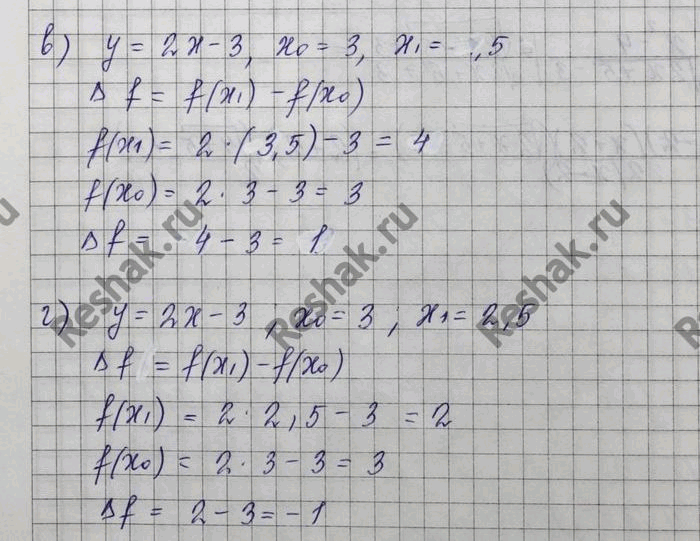 в) y = 2x - 3, x₀ = 3, x₁ = ,5
Δf = f(x₁) - f(x₀)
f(x₁) = 2 · (3,5) - 3 = 4
f(x₀) = 2 · 3 - 3 = 3
Δf = 4 - 3 = 1
г) y = 2x - 3, x₀ = 3; x₁ = 2,5
Δf = f(x₁) - f(x₀)
f(x₁) = 2 · 2,5 - 3 = 2
f(x₀) = 2 · 3 - 3 = 3
Δf = 2 - 3 = -1
Reshak.ru
Reshak.ru
Reshak.ru